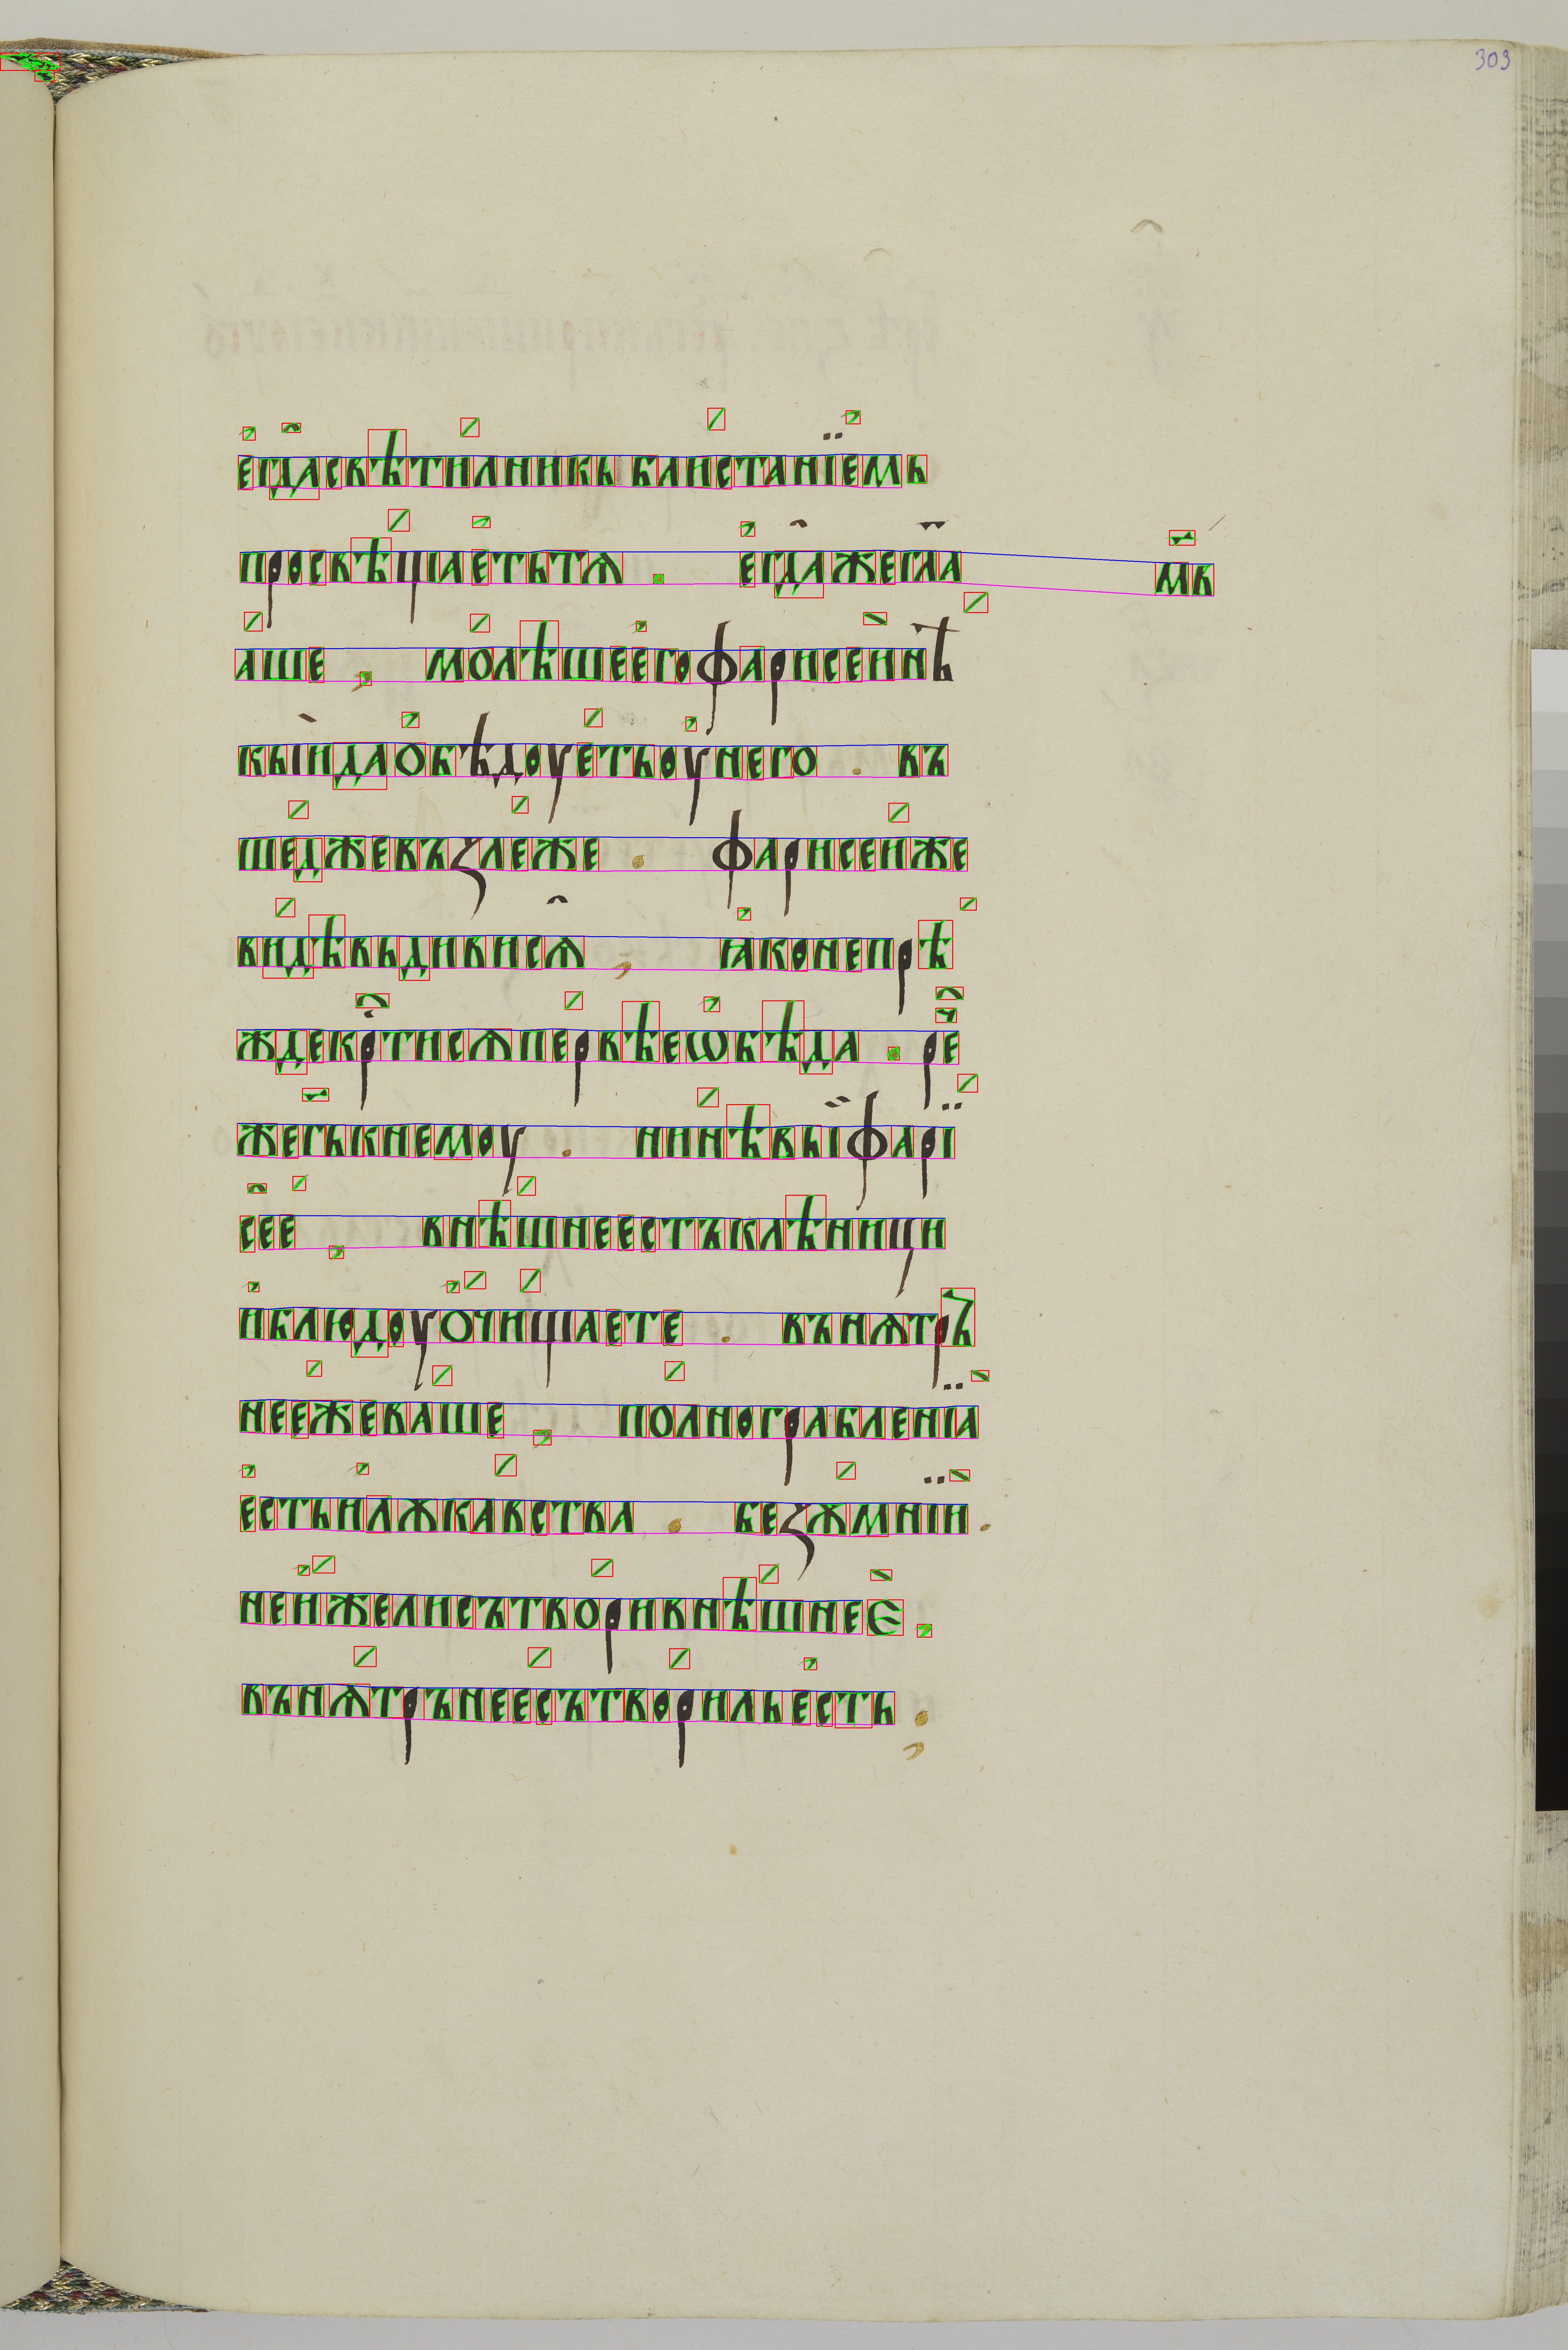 303
егда̑свѣти́лникь бли́станїемь
просвѣ́щаетьтѧ . егда̑жегл҃а мв҃
а́ше , молѣ́шеегофарисеинѣ́
кыѝдаобѣдоуе́тьоунего . въ
ше́джевъзле́же . фарисеи́же
ви́дѣвьдивисѧ̑ , ꙗконепрѣ́
ждекр҇тисѧпе́рвѣеѡбѣда . ре҇
жегь҃кнемоу . нинѣ́выфарї
се̑е́ , внѣ́шнеестъклѣници
иблюдоуо́чи́щаете . вънѫтръ
нее́жева́ше , полно́грабленїа̀
естьилѫка́вства . безꙋ́мнїѝ .
неи́желисътво́ривнѣ́шнеѐ ,
вънѫ́тръне́есътво́рильесть .